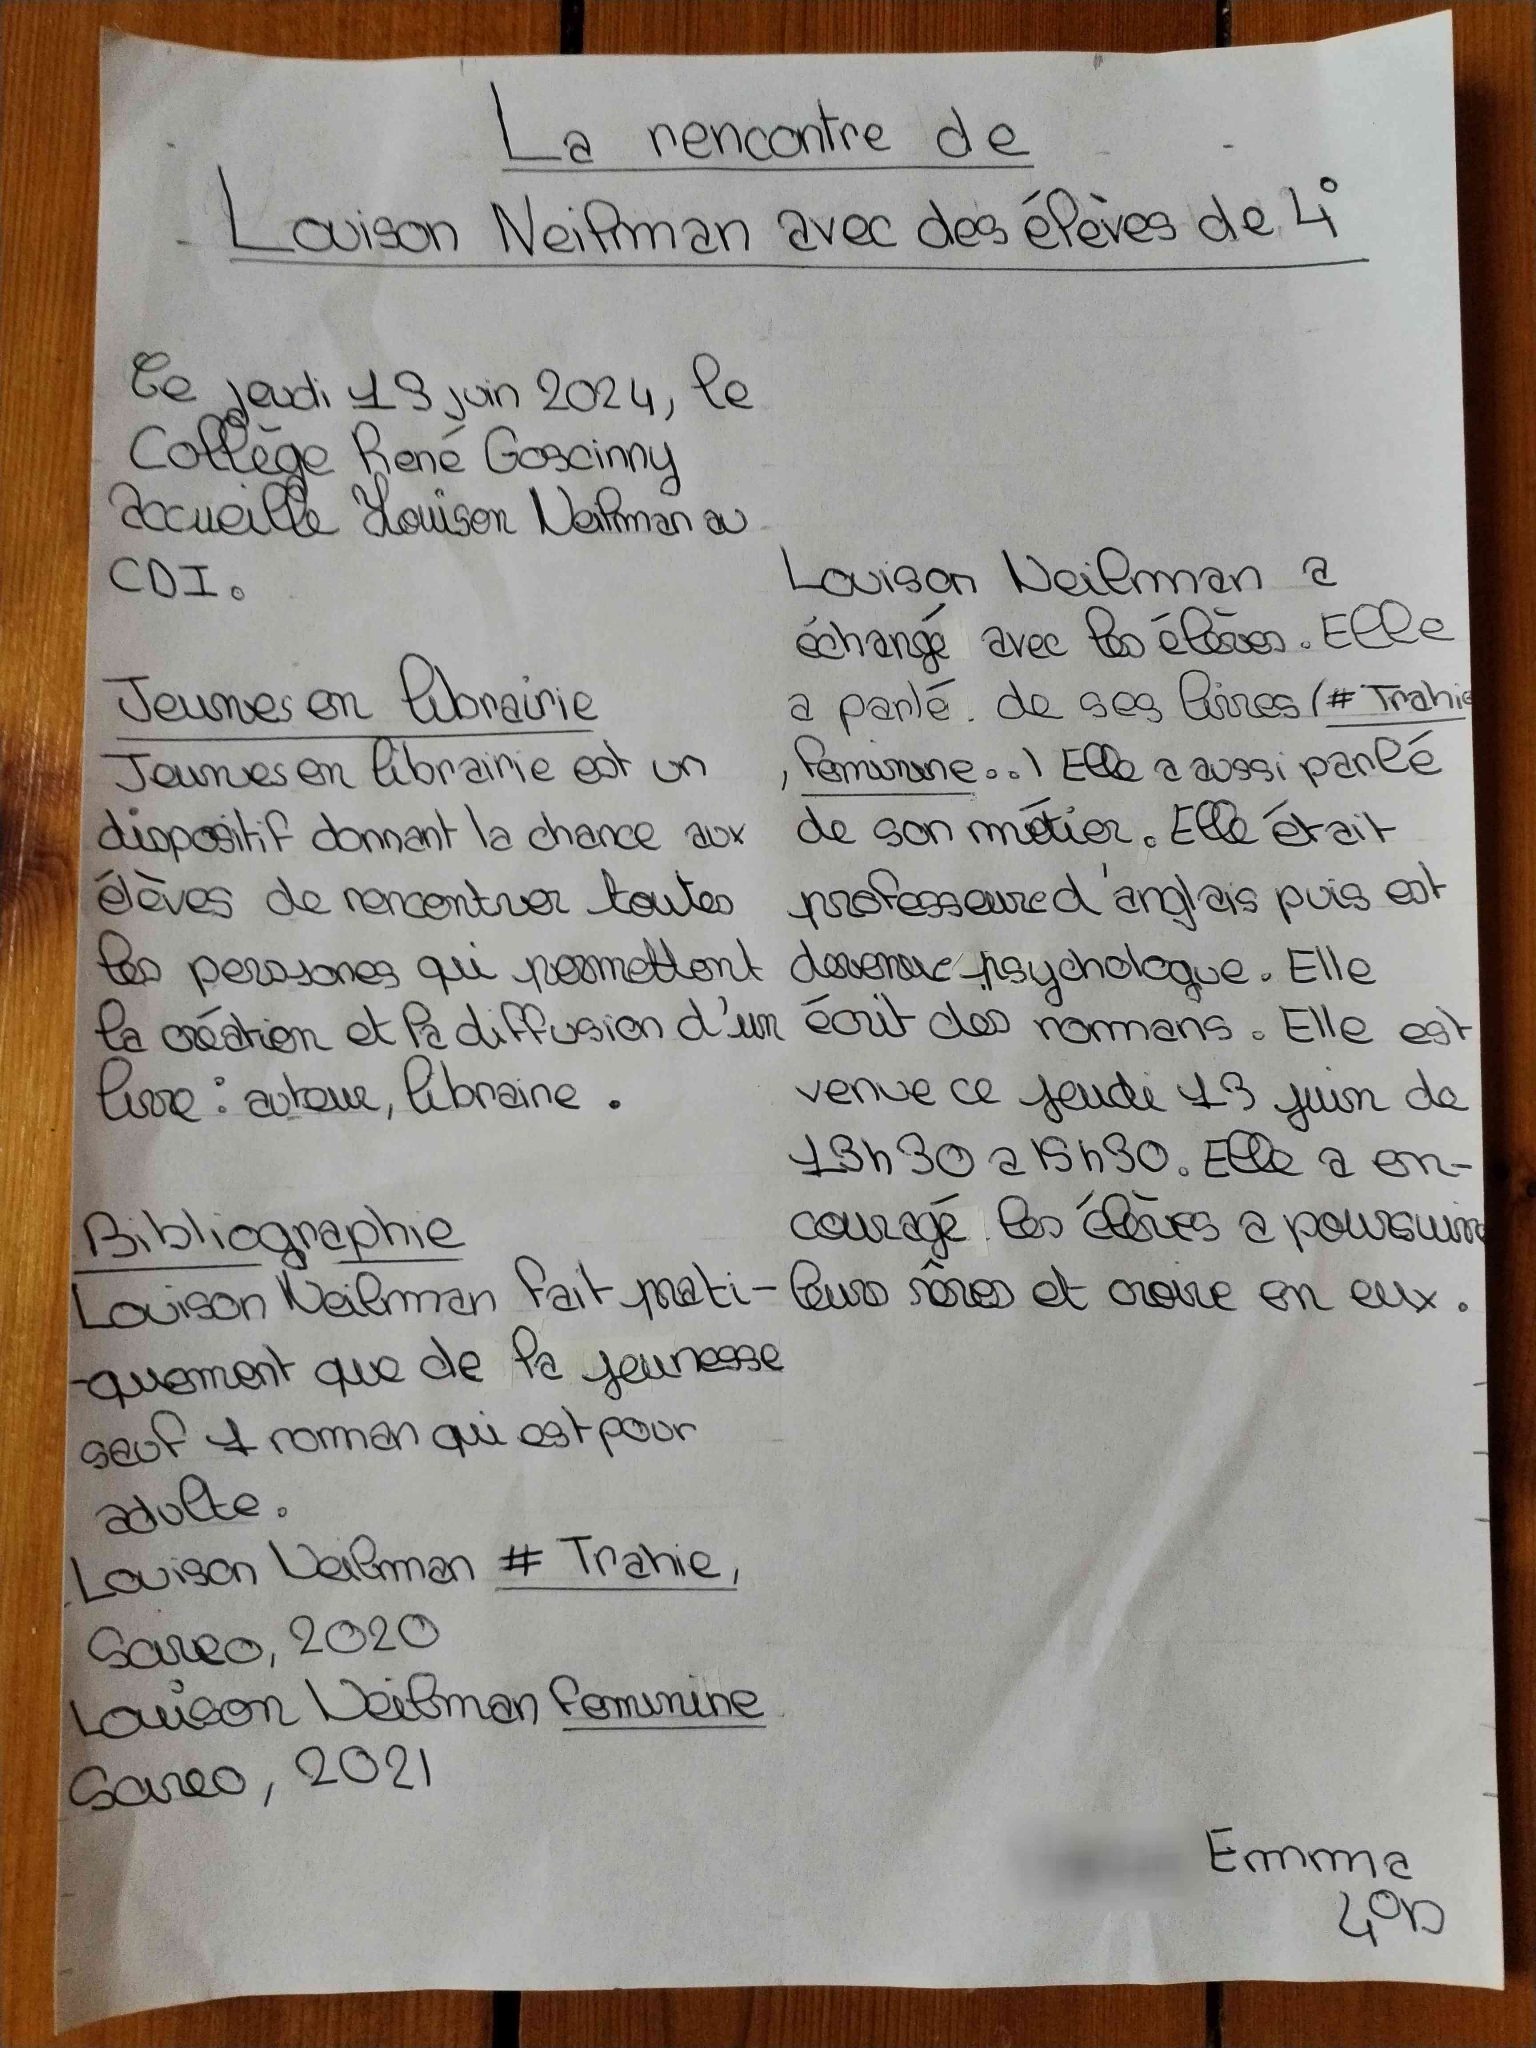 La rencontre de
Louison Neilman avec des élèves de 4°
Ce jeudi 13 juin 2024, le
Collège René Goscinny
accueille Louison Neilman au
CDI.
Jeunes en librairie
Jeunes en librairie est un
dispositif donnant la chance aux
élèves de rencontrer toutes
les persones qui permettent
la création et la diffusion d'un
livre : auteur, libraire.
Bibliographie
Louison Neilman fait prati-
-quement que de la jeunesse
sauf 1 roman qui est pour
adulte.
Louison Neilman # Trahie,
Scrineo, 2020
Louison Neilman feminine
Scrineo, 2021
Louison Neilman a
échangé avec les élèves. Elle
a parlé de ses livres (# Trahie
, feminine...) Elle a aussi parlé
de son métier. Elle était
professeure d'anglais puis est
devenue psychologue. Elle
écrit des romans. Elle est
venue ce jeudi 13 juin de
13h30 a 15h30. Elle a en-
couragé les élèves a poursuivre
leurs rêves et croire en eux.
Emma
4°D